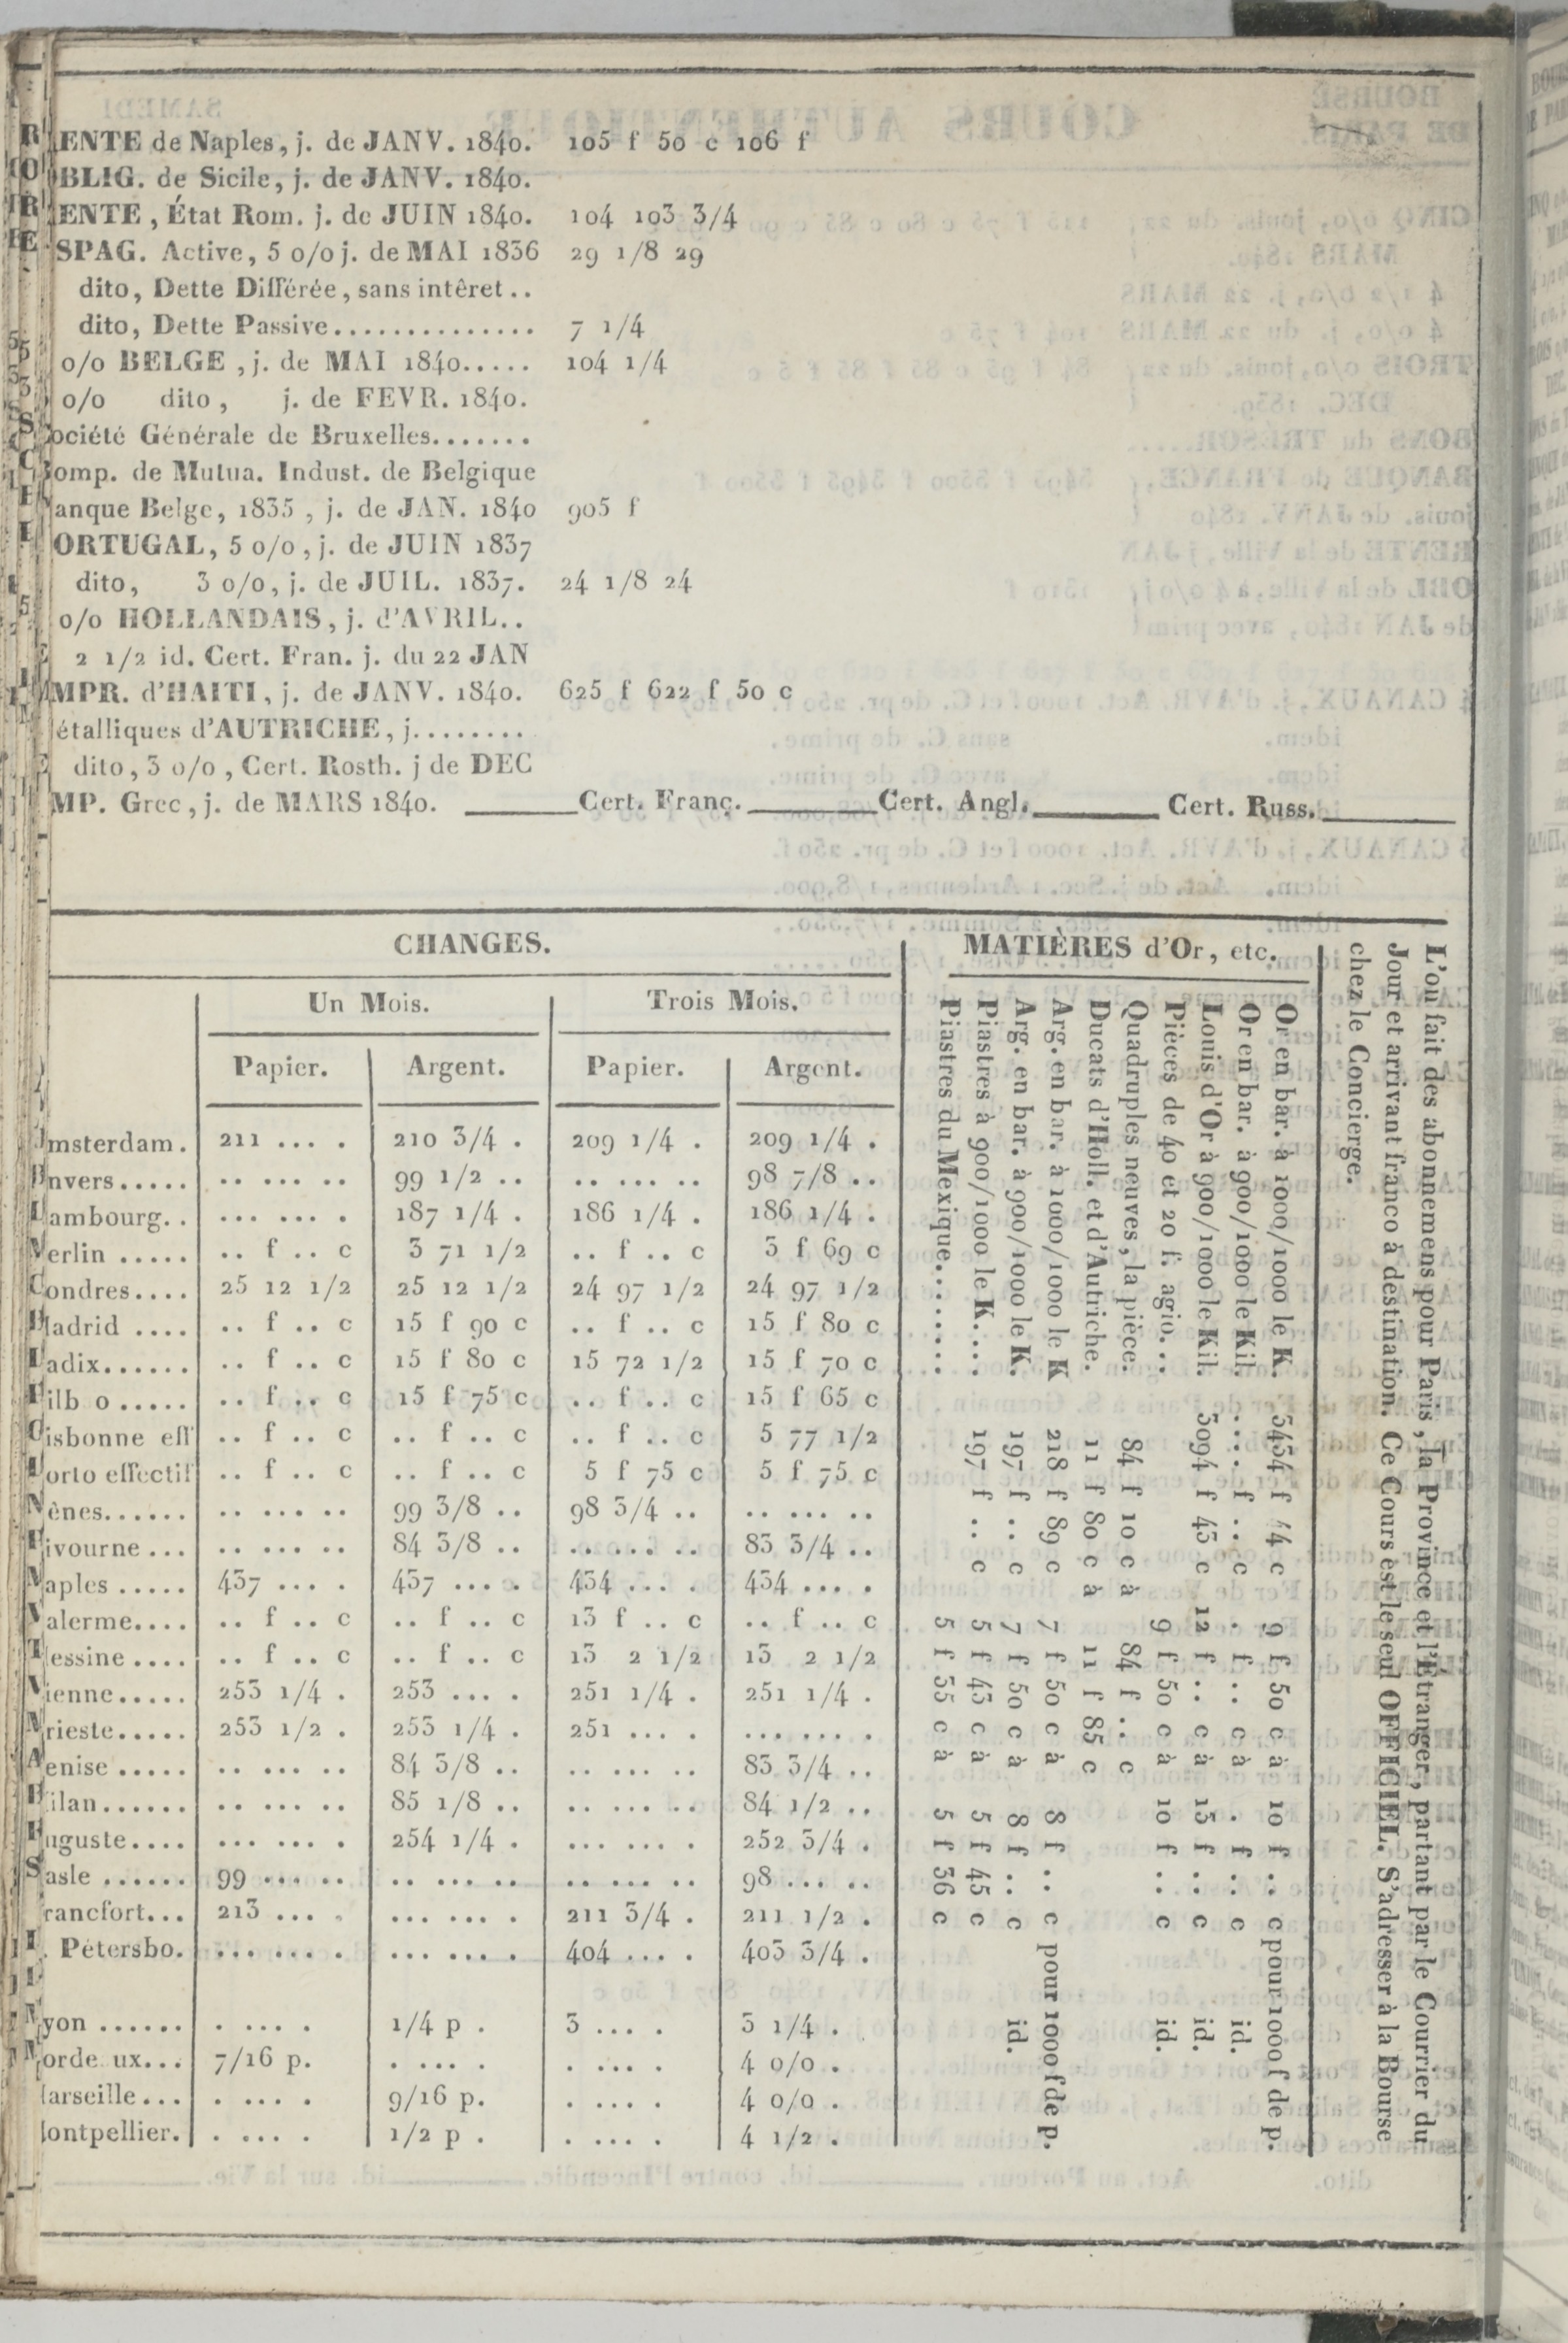 ENTE de Naples, j. de JANV. 1840. 105 f 50 c 106 f
BLIG. de Sicile, j. de JANV. 1840.
ENTE, État Rom. j. de JUIN 1840. 104 103 3/4
SPAG. Active, 5 o/o j. de MAI 1836 29 1/8 29
dito, Dette Différée, sans intêret..
dito, Dette Passive.............. 7 1/4
o/o BELGE, j. de MAI 1840..... 104 1/4
o/o dito, j. de FEVR. 1840.
ociété Générale de Bruxelles.......
omp. de Mutua. Indust. de Belgique
anque Belge, 1835, j. de JAN. 1840 905 f
ORTUGAL, 5 o/o, j. de JUIN 1837
dito, 3 o/o, j. de JUIL. 1837. 24 1/8 24
o/o HOLLANDAIS, j. d'AVRIL..
2 1/2 id. Cert. Fran. j. du 22 JAN
MPR. d'HAITI, j. de JANV. 1840. 625 f 622 f 50 c
étalliques d'AUTRICHE, j........
dito, 3 o/o, Cert. Rosth. j de DEC
MP. Grec, j. de MARS 1840. ____ Cert. Franç. ____ Cert. Angl. ____ Cert. Russ. ____
CHANGES.
Un Mois. Trois Mois.
Papier. Argent. Papier. Argent.
msterdam. 211 .... . 210 3/4 . 209 1/4 . 209 1/4 .
nvers..... .. ... .. 99 1/2 .. .. ... .. 98 7/8 ..
ambourg.. ... ... . 187 1/4 . 186 1/4 . 186 1/4 .
erlin ..... .. f .. c 3 71 1/2 .. f .. c 3 f 69 c
ondres.... 25 12 1/2 25 12 1/2 24 97 1/2 24 97 1/2
adrid .... .. f .. c 15 f 90 c .. f .. c 15 f 80 c
adix...... .. f .. c 15 f 80 c 15 72 1/2 15 f 70 c
ilb o ..... .. f .. c 15 f 75 c .. f .. c 15 f 65 c
isbonne eff .. f .. c .. f .. c .. f .. c 5 77 1/2
orto effectif .. f .. c .. f .. c 5 f 75 c 5 f 75 c
ènes...... .. ... .. 99 3/8 .. 98 3/4 .. .. ... ..
ivourne ... .. ... .. 84 3/8 .. .. ... .. 83 3/4 ..
aples ..... 437 .... . 437 .... . 434 .... . 434 .... .
alerme.... .. f .. c .. f .. c 13 f .. c .. f .. c
essine .... .. f .. c .. f .. c 13 2 1/2 13 2 1/2
ienne..... 253 1/4 . 253 .... . 251 1/4 . 251 1/4 .
rieste..... 253 1/2 . 253 1/4 . 251 ... . ... ... .
enise ..... .. ... .. 84 3/8 .. .. ... .. 83 3/4 ..
ilan...... .. ... .. 85 1/8 .. .. ... .. 84 1/2 ..
uguste.... ... ... . 254 1/4 . ... ... . 252 3/4 .
asle ...... 99 ... .. .. ... .. .. ... .. 98 ... ..
rancfort... 213 ... . ... ... . 211 3/4 . 211 1/2 .
. Pétersbo. ... ... . ... ... . 404 ... . 403 3/4 .
yon ...... . .... . 1/4 p . 3 .... . 3 1/4 .
orde ux... 7/16 p. . .... . . .... . 4 o/o .
arseille... . .... . 9/16 p. . .... . 4 o/o .
ontpellier. . .... . 1/2 p . . .... . 4 1/2 .
MATIÈRES d'Or, etc.
Or en bar. à 1000/1000 le K. 3434 f 44 c 9 f 50 c à 10 f .. c pour 1000 f de p.
Or en bar. à 900/1000 le Kil. .... f .. c . f .. c à . f .. c id.
Louis d'Or à 900/1000 le Kil. 3094 f 43 c 12 f .. c à 13 f .. c id.
Pièces de 40 et 20 f. agio... 9 f 50 c à 10 f .. c id.
Quadruples neuves, la pièce. 84 f 10 c à 84 f .. c
Ducats d'Holl. et d'Autriche. 11 f 80 c à 11 f 85 c
Arg. en bar. à 1000/1000 le K 218 f 89 c 7 f 50 c à 8 f .. c pour 1000 f de p.
Arg. en bar. à 900/1000 le K. 197 f .. c 7 f 50 c à 8 f .. c id.
Piastres à 900/1000 le K.... 197 f .. c 5 f 43 c à 5 f 45 c
Piastres du Mexique....... 5 f 35 c à 5 f 36 c
L'on fait des abonnemens pour Paris, la Province et l'Étranger, partant par le Courrier du
Jour et arrivant franco à destination. Ce Cours est le seul OFFICIEL. S'adresser à la Bourse
chez le Concierge.